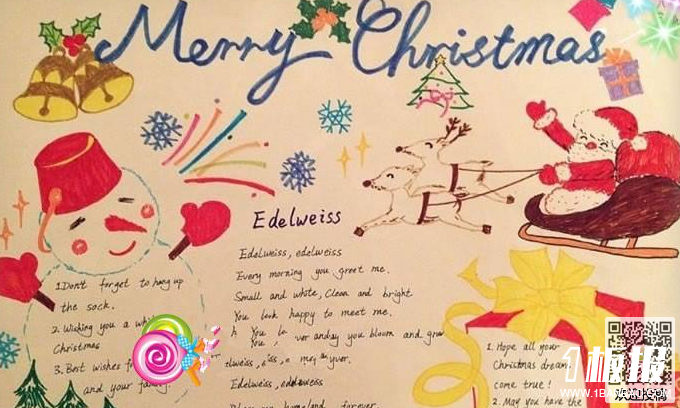 Merry Christmas
Edelweiss
Edelweiss, edelweiss
Every morning you greet me.
Small and white, Clean and bright
You look happy to meet me.
you bloom and grow
Edelweiss, edelweiss
forever
1. Don't forget to hang up
the sock.
2. Wishing you a
Christmas
3. Best wishes
and your
1. Hope all your
Christmas dream
come true!
2. May you have the
1板报
WWW.1BAN
欢迎投稿